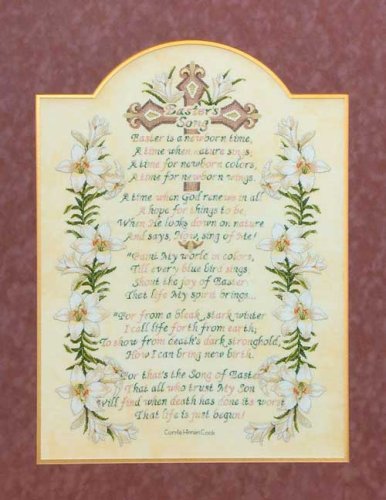 Easter's
Song
Easter is a newborn time,
A time when nature sings,
A time for newborn colors,
A time for newborn wings.
A time when God renews in all
A hope for things to be,
When He looks down on nature
And says, Now, sing of Me!
"Paint My world in colors,
Till every blue bird sings
Shout the joy of Easter
That life My spirit brings...
"For from a bleak, stark winter
I call life forth from earth;
To show from death's dark stronghold,
How I can bring new birth.
"For that's the Song of Easter
That all who trust My Son
Will find when death has done its worst
That life is just begun!
Cook